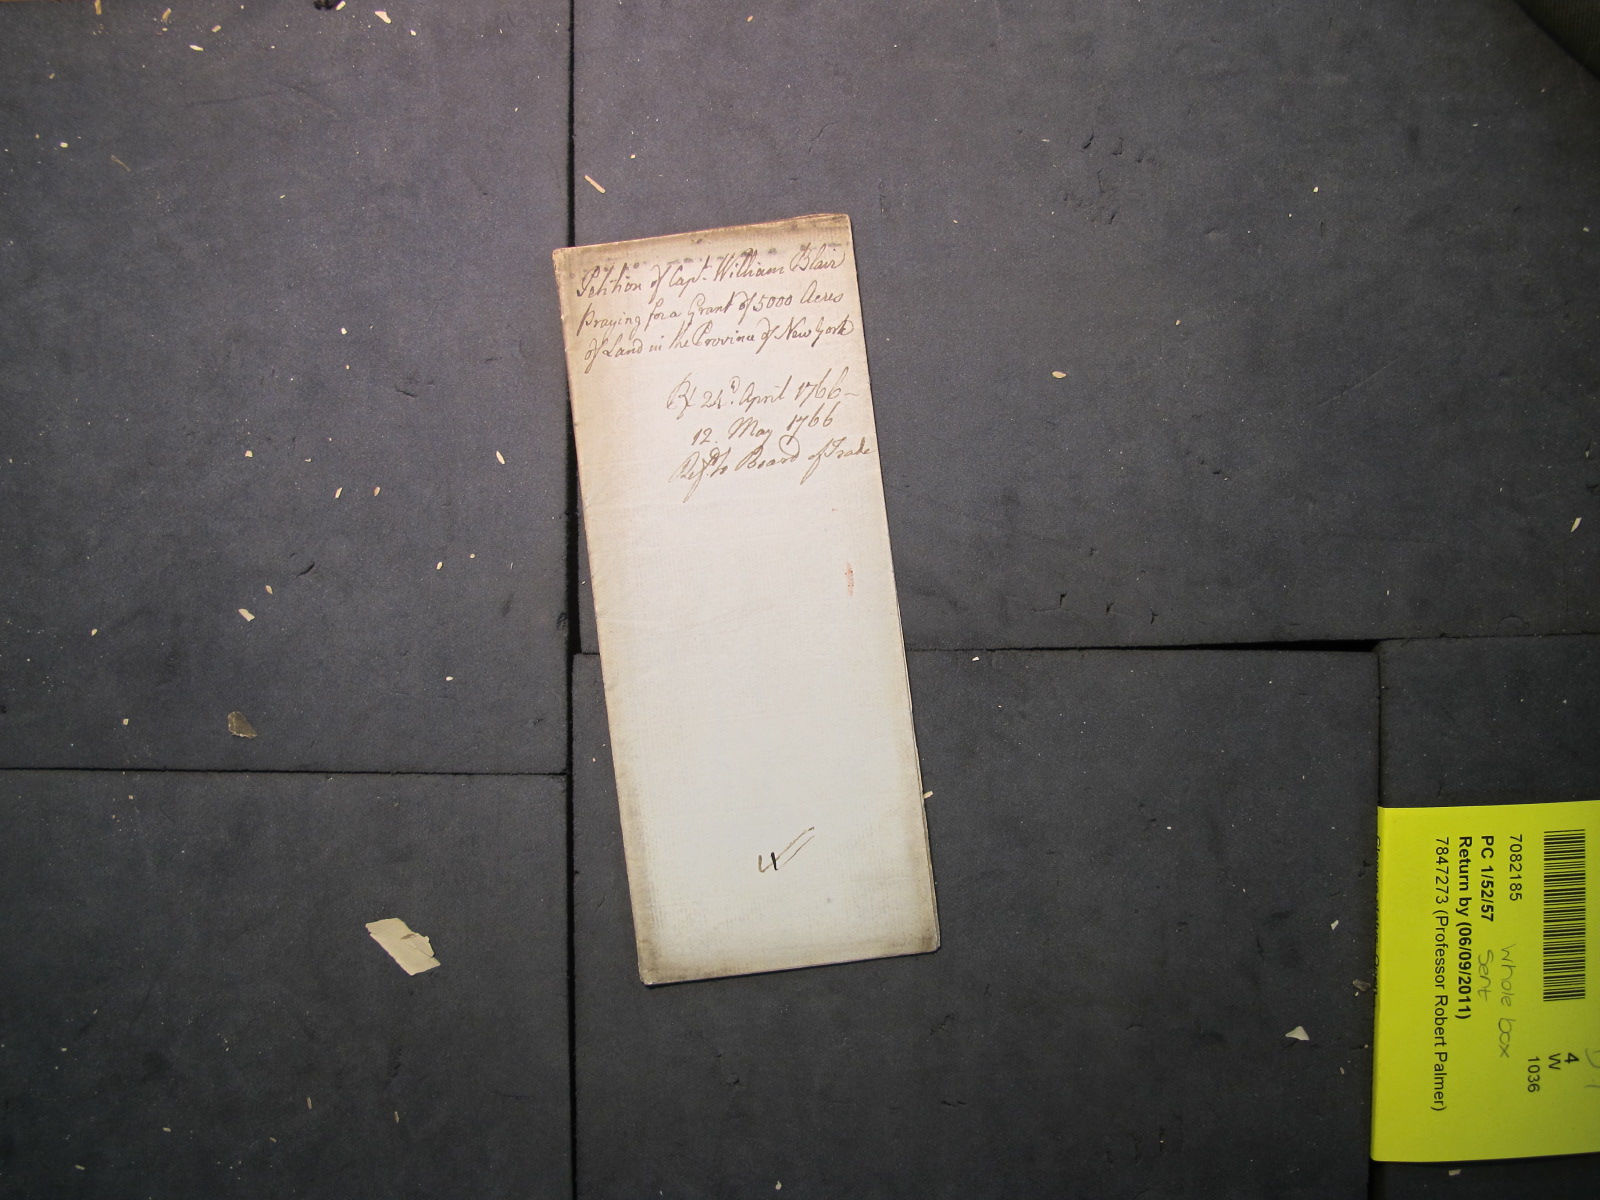 Petition of Capt. William Blair
praying for a Grant of 5000 Acres
of Land in the Province of New York
Rx 24.d April 1766 –
12. May 1766
Ref.d to Board of Trade
7082185
PC 1/52/57
Return by (06/09/2011)
7847273 (Professor Robert Palmer)
whole box
sent
4
W
1036